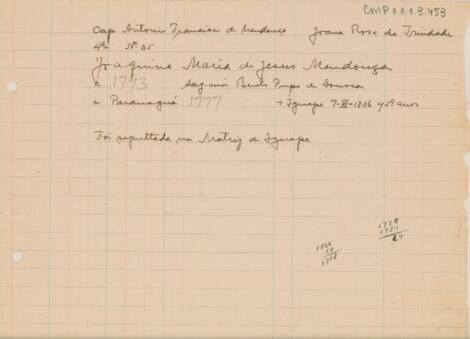 CMP 1.1.3.453
Cap Antonio Francisco de Mendonça Joana Rosa da Trindade
4º Nº 35
Joaquina Maria de Jesus Mendonça
c 1793 Sag mór Bento Pupo de Gouvea
n Paranaguá 1777 + Iguape 7-III-1836 c/59 anos
Foi sepultada na Matriz de Iguape
1778
1836
58
1778